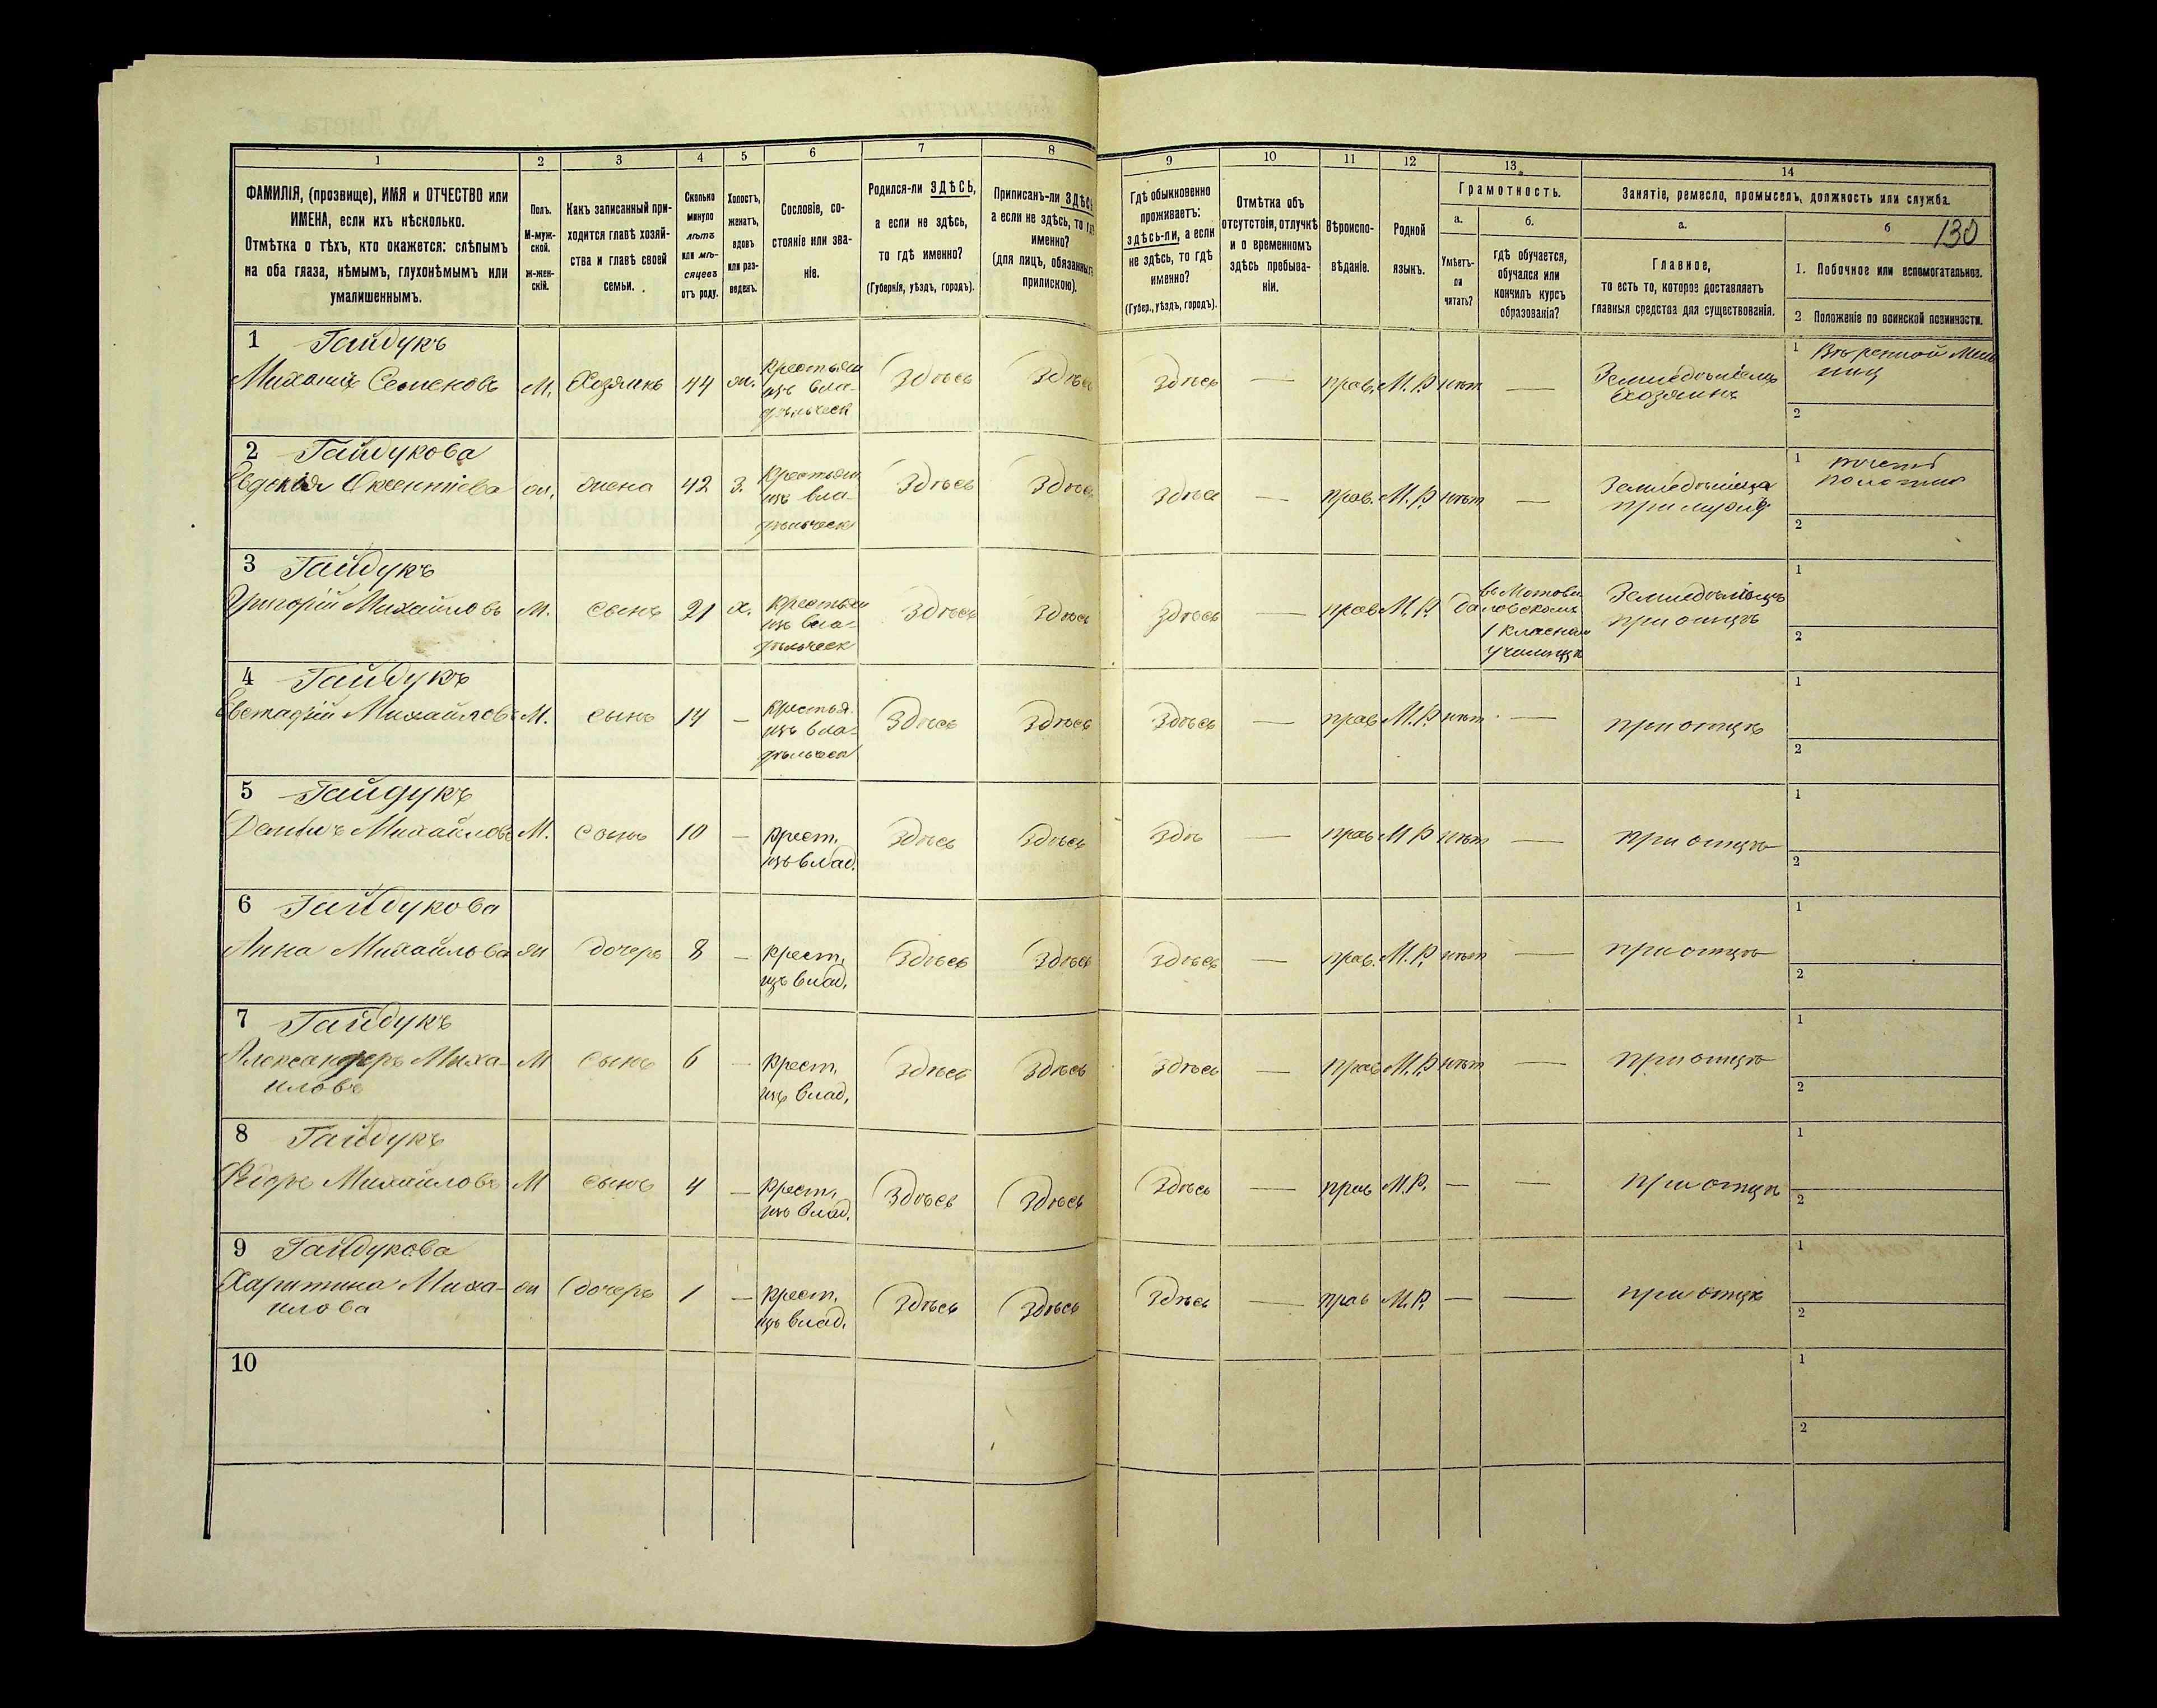 1 2 3 4 5 6 7 8 9 10 11 12 13 14
ФАМИЛІЯ, (прозвище), ИМЯ и ОТЧЕСТВО или
ИМЕНА, если ихъ нѣсколько.
Отмѣтка о тѣхъ, кто окажется: слѣпымъ
на оба глаза, нѣмымъ, глухонѣмымъ или
умалишеннымъ.
Полъ.
М-муж-
ской.
ж-жен-
скій.
Какъ записанный при-
ходится главѣ хозяй-
ства и главѣ своей
семьи.
Сколько
минуло
лѣтъ
или мѣ-
сяцевъ
отъ роду.
Холостъ,
женатъ,
вдовъ
или раз-
веденъ.
Сословіе, со-
стояніе или зва-
ніе.
Родился-ли ЗДѢСЬ,
а если не здѣсь,
то гдѣ именно?
(Губернія, уѣздъ, городъ).
Приписанъ-ли ЗДѢСЬ
а если не здѣсь, то гдѣ
именно?
(для лицъ, обязанныхъ
припискою).
Гдѣ обыкновенно
проживаетъ:
здѣсь-ли, а если
не здѣсь, то гдѣ
именно?
(Губер., уѣздъ, городъ).
Отмѣтка объ
отсутствіи, отлучкѣ
и о временномъ
здѣсь пребыва-
ніи.
Вѣроиспо-
вѣданіе.
Родной
языкъ.
Грамотность.
а.
Умѣетъ-
ли
читать?
б.
гдѣ обучается,
обучался или
кончилъ курсъ
образованія?
Занятіе, ремесло, промыселъ, должность или служба.
а.
Главное,
то есть то, которое доставляетъ
главныя средства для существованія.
б
130
1. Побочное или вспомогательное.
2. Положеніе по воинской повинности.
1 Гайдукъ
Михаилъ Семеновъ М. Хозяинъ 44 ж. Крестьян изъ вла- дѣльческ Здѣсь Здѣсь Здѣсь — прав. М.Р. нѣтъ — Земледѣлецъ Хозяинъ
1
2
2 Гайдукова
ж. жена 42 з. Крестьян изъ вла- дѣльческ Здѣсь Здѣсь — прав. М.Р. нѣтъ —
1
2
3 Гайдукъ
Григорій Михайловъ М. сынъ 21 х. Крестьян изъ вла- дѣльческ Здѣсь Здѣсь Здѣсь — прав М.Р. да 1 класном училищѣ Земледѣлецъ при отцѣ
1
2
4 Гайдукъ
Михайловъ М. сынъ 14 — Крестья. изъ вла- дѣльческ Здѣсь Здѣсь Здѣсь — прав М.Р. нѣт — при отцѣ
1
2
5 Гайдукъ
Михайловъ М. Сынъ 10 — крест. изъ влад. Здѣсь Здѣсь Здѣ — прав М Р нѣт — при отцѣ
1
2
6 Гайдукова
Анна Михайлова ж дочерь 8 — крест. изъ влад. Здѣсь Здѣсь Здѣсь — прав. М.Р. нѣт — при отцѣ
1
2
7 Гайдукъ
Александеръ Миха- М сынъ 6 — крест. изъ влад. Здѣсь Здѣсь Здѣсь — прав М.Р нѣт — при отцѣ
иловъ
1
2
8 Гайдукъ
Ѳедоръ Михайловъ М сынъ 4 — крест. изъ влад. Здѣсь Здѣсь Здѣсь — прав М.Р. — — при отцѣ
1
2
9 Гайдукова
Харитина Миха- ж дочерь 1 — крест. изъ влад. Здѣсь Здѣсь Здѣсь — прав М.Р. — — при отцѣ
илова
1
2
10
1
2